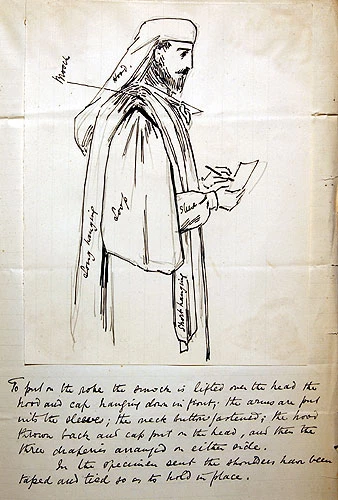 Hood.
Brooch
Loop
Sleeve
Long hanging
Short hanging
To put on the robe the smock is lifted over the head the
hood and cap hanging down in front; the arms are put
into the sleeves; the neck button fastened; the hood
thrown back and cap put on the head, and then the
three draperies arranged on either side.
In the specimen sent the shoulders have been
taped and tied so as to hold in place.